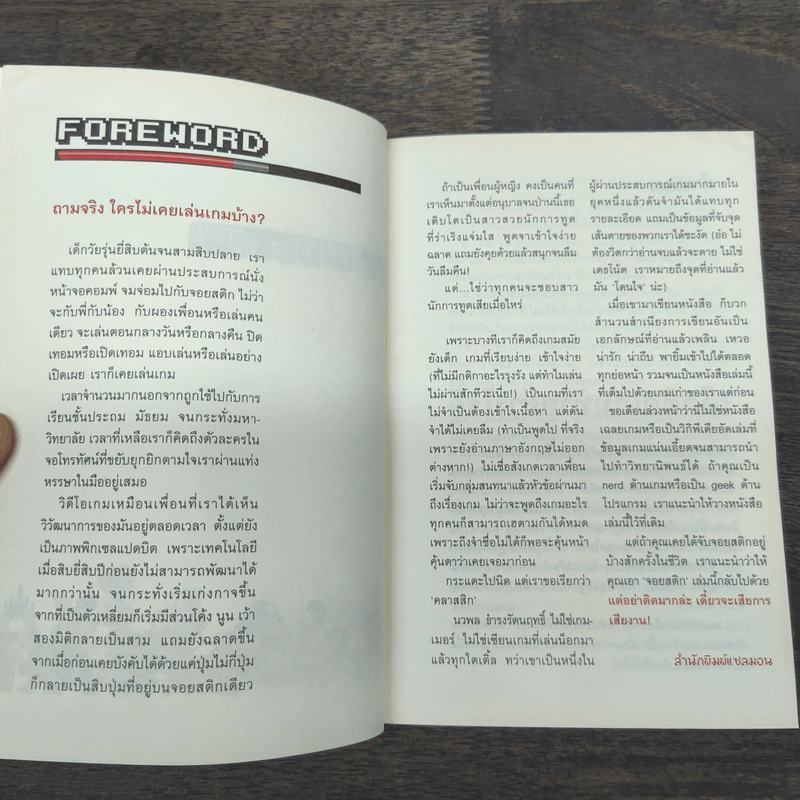 FOREWORD
ถามจริง ใครไม่เคยเล่นเกมบ้าง?
เด็กวัยรุ่นยี่สิบต้นจนสามสิบปลาย เรา
แทบทุกคนล้วนเคยผ่านประสบการณ์นั่ง
หน้าจอคอมพ์ จมจ่อมไปกับจอยสติก ไม่ว่า
จะกับพี่กับน้อง กับผองเพื่อนหรือเล่นคน
เดียว จะเล่นตอนกลางวันหรือกลางคืน ปิด
เทอมหรือเปิดเทอม แอบเล่นหรือเล่นอย่าง
เปิดเผย เราก็เคยเล่นเกม
เวลาจำนวนมากนอกจากถูกใช้ไปกับการ
เรียนชั้นประถม มัธยม จนกระทั่งมหา-
วิทยาลัย เวลาที่เหลือเราก็คิดถึงตัวละครใน
จอโทรทัศน์ที่ขยับยุกยิกตามใจเราผ่านแท่ง
หรรษาในมืออยู่เสมอ
วิดีโอเกมเหมือนเพื่อนที่เราได้เห็น
วิวัฒนาการของมันอยู่ตลอดเวลา ตั้งแต่ยัง
เป็นภาพพิกเซลแปดบิต เพราะเทคโนโลยี
เมื่อสิบยี่สิบปีก่อนยังไม่สามารถพัฒนาได้
มากกว่านั้น จนกระทั่งเริ่มเก่งกาจขึ้น
จากที่เป็นตัวเหลี่ยมก็เริ่มมีส่วนโค้ง นูน เว้า
สองมิติกลายเป็นสาม แถมยังฉลาดขึ้น
จากเมื่อก่อนเคยบังคับได้ด้วยแค่ปุ่มไม่กี่ปุ่ม
ก็กลายเป็นสิบปุ่มที่อยู่บนจอยสติกเดียว
ถ้าเป็นเพื่อนผู้หญิง คงเป็นคนที่
เราเห็นมาตั้งแต่อนุบาลจนป่านนี้เธอ
เติบโตเป็นสาวสวยนักการทูต
ที่ร่าเริงแจ่มใส พูดจาเข้าใจง่าย
ฉลาด แถมยังคุยด้วยแล้วสนุกจนลืม
วันลืมคืน!
แต่...ใช่ว่าทุกคนจะชอบสาว
นักการทูตเสียเมื่อไหร่
เพราะบางทีเราก็คิดถึงเกมสมัย
ยังเด็ก เกมที่เรียบง่าย เข้าใจง่าย
(ที่ไม่มีกติกาอะไรรุงรัง แต่ทำไมเล่น
ไม่ผ่านสักทีวะเนี่ย!) เป็นเกมที่เรา
ไม่จำเป็นต้องเข้าใจเนื้อหา แต่ดัน
จำได้ไม่เคยลืม (ทำเป็นพูดไป ที่จริง
เพราะยังอ่านภาษาอังกฤษไม่ออก
ต่างหาก!) ไม่เชื่อสังเกตเวลาเพื่อน
เริ่มจับกลุ่มสนทนาแล้วหัวข้อผ่านมา
ถึงเรื่องเกม ไม่ว่าจะพูดถึงเกมอะไร
ทุกคนก็สามารถเฮตามกันได้หมด
เพราะถึงจำชื่อไม่ได้ก็พอจะคุ้นหน้า
คุ้นตาว่าเคยเจอมาก่อน
กระแดะไปนิด แต่เราขอเรียกว่า
'คลาสสิก'
นวพล ธำรงรัตนฤทธิ์ ไม่ใช่เกม-
เมอร์ ไม่ใช่เซียนเกมที่เล่นน็อกมา
แล้วทุกไตเติ้ล ทว่าเขาเป็นหนึ่งใน
ผู้ผ่านประสบการณ์เกมมากมายใน
ยุคหนึ่งแล้วดันจำมันได้แทบทุก
รายละเอียด แถมเป็นข้อมูลที่จับจุด
เส้นตายของพวกเราได้ชะงัด (อ๋อ ไม่
ต้องวิตกว่าอ่านจบแล้วจะตาย ไม่ใช่
เดธโน้ต เราหมายถึงจุดที่อ่านแล้ว
มัน 'โดนใจ' น่ะ)
เมื่อเขามาเขียนหนังสือ ก็บวก
สำนวนสำเนียงการเขียนอันเป็น
เอกลักษณ์ที่อ่านแล้วเพลิน เหวอ
น่ารัก น่าถีบ พายิ้มเข้าไปได้ตลอด
ทุกย่อหน้า รวมจนเป็นหนังสือเล่มนี้
ที่เต็มไปด้วยเกมเก่าของเราแต่ก่อน
ขอเตือนล่วงหน้าว่านี่ไม่ใช่หนังสือ
เฉลยเกมหรือเป็นวิกิพีเดียอัดเล่มที่
ข้อมูลเกมแน่นเอี้ยดจนสามารถนำ
ไปทำวิทยานิพนธ์ได้ ถ้าคุณเป็น
nerd ด้านเกมหรือเป็น geek ด้าน
โปรแกรม เราแนะนำให้วางหนังสือ
เล่มนี้ไว้ที่เดิม
แต่ถ้าคุณเคยได้จับจอยสติกอยู่
บ้างสักครั้งในชีวิต เราแนะนำว่าให้
คุณเอา 'จอยสติก' เล่มนี้กลับไปด้วย
แต่อย่าติดมากล่ะ เดี๋ยวจะเสียการ
เสียงาน!
สำนักพิมพ์แซลมอน